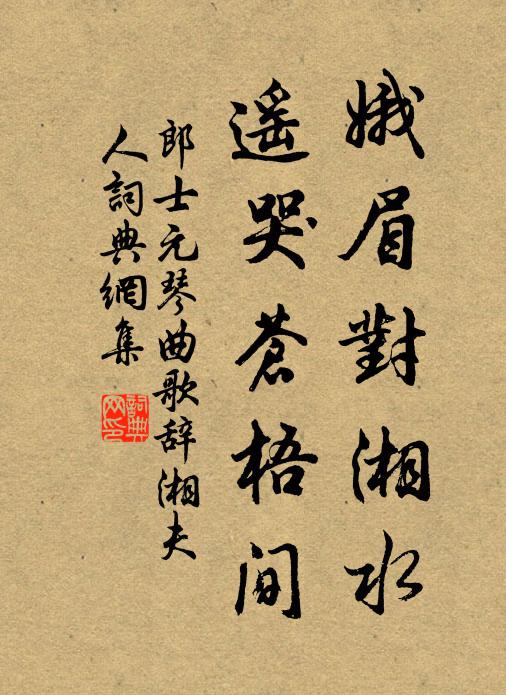 娥眉對湘水
遥哭蒼梧间
郎士元琴曲歌辞湘夫
人詞典網集
詞典网印